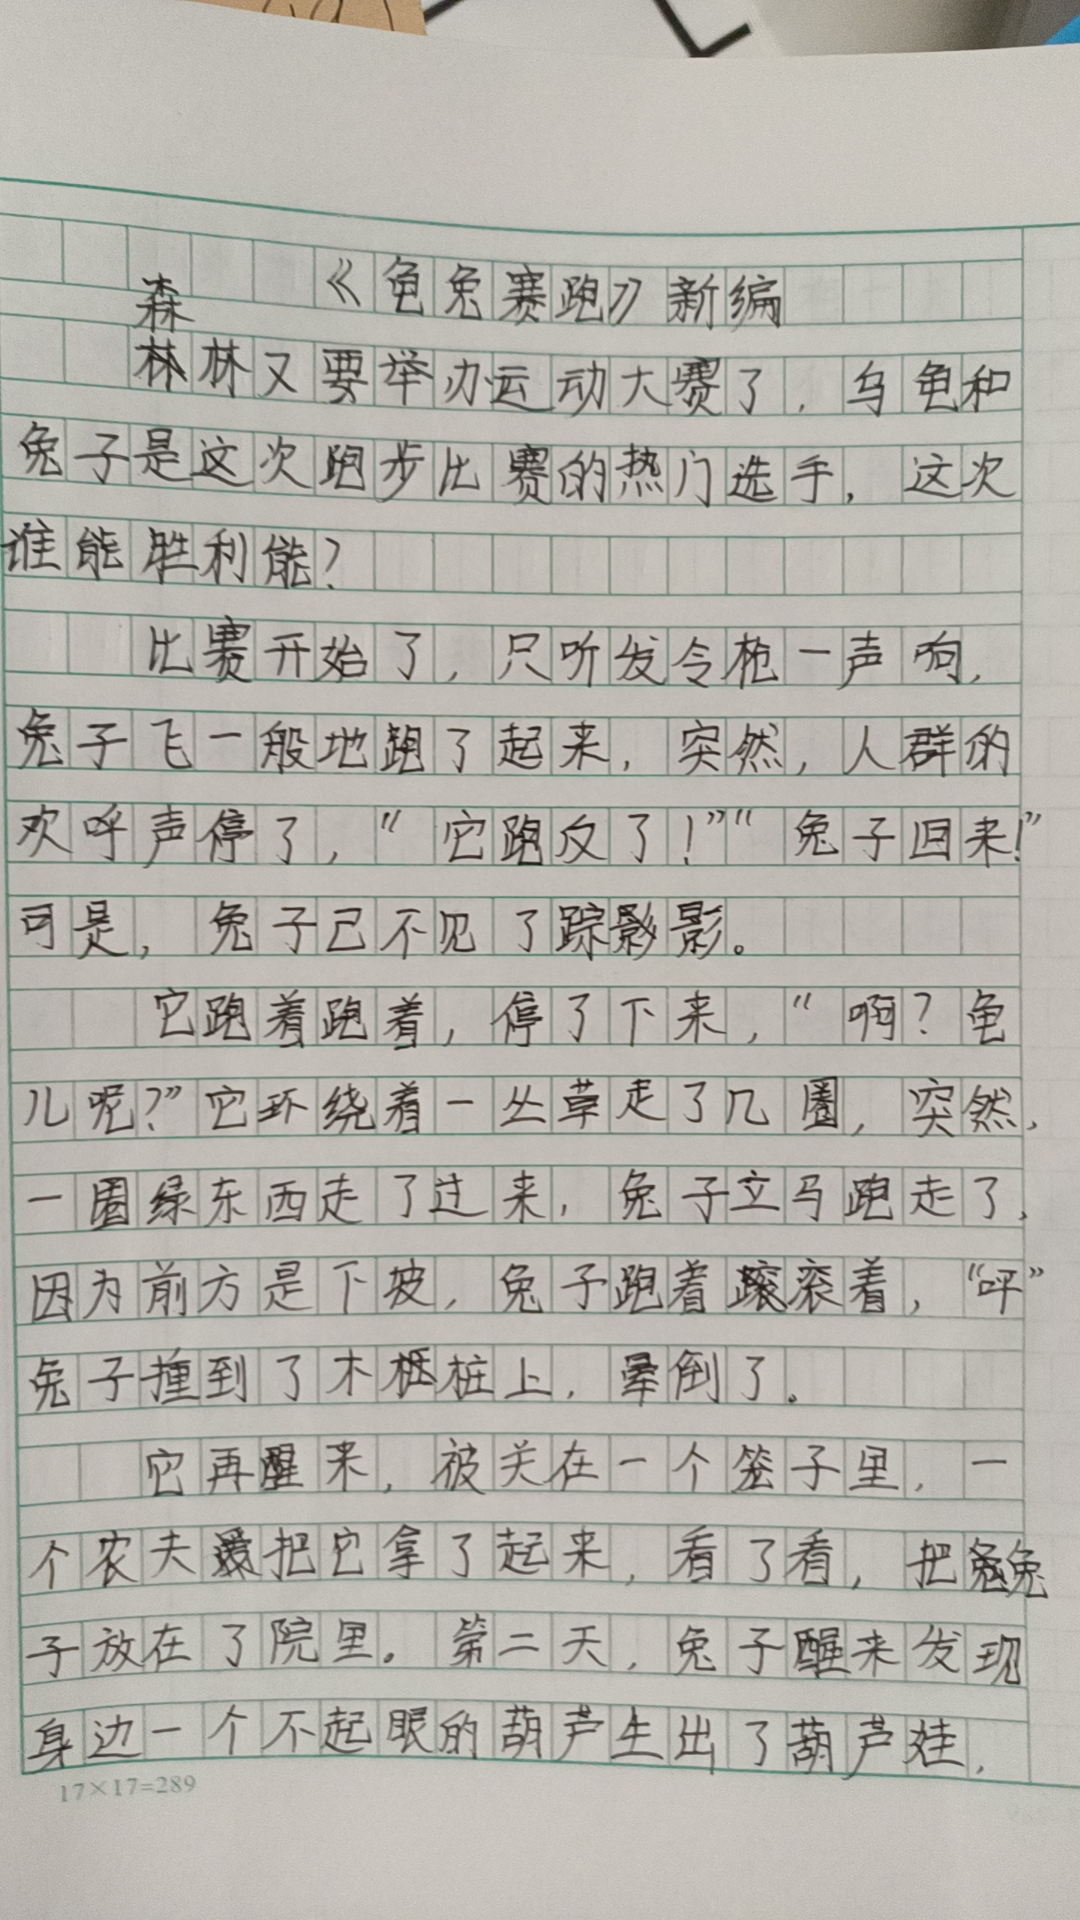 《龟兔赛跑》新编
森林又要举办运动大赛了，乌龟和
兔子是这次跑步比赛的热门选手，这次
谁能胜利能？
比赛开始了，只听发令枪一声响，
兔子飞一般地跑了起来，突然，人群的
欢呼声停了，“它跑反了！”“兔子回来！”
可是，兔子己不见了踪影影。
它跑着跑着，停了下来，“啊？龟
儿呢？”它环绕着一丛草走了几圈，突然，
一圈绿东西走了过来，兔子立马跑走了，
因为前方是下坡，兔子跑着滚着，“呯”
兔子撞到了木桩上，晕倒了。
它再醒来，被关在一个笼子里，一
个农夫把它拿了起来，看了看，把兔
子放在了院里。第二天，兔子醒来发现
身边一个不起眼的葫芦生出了葫芦娃，
17×17=289